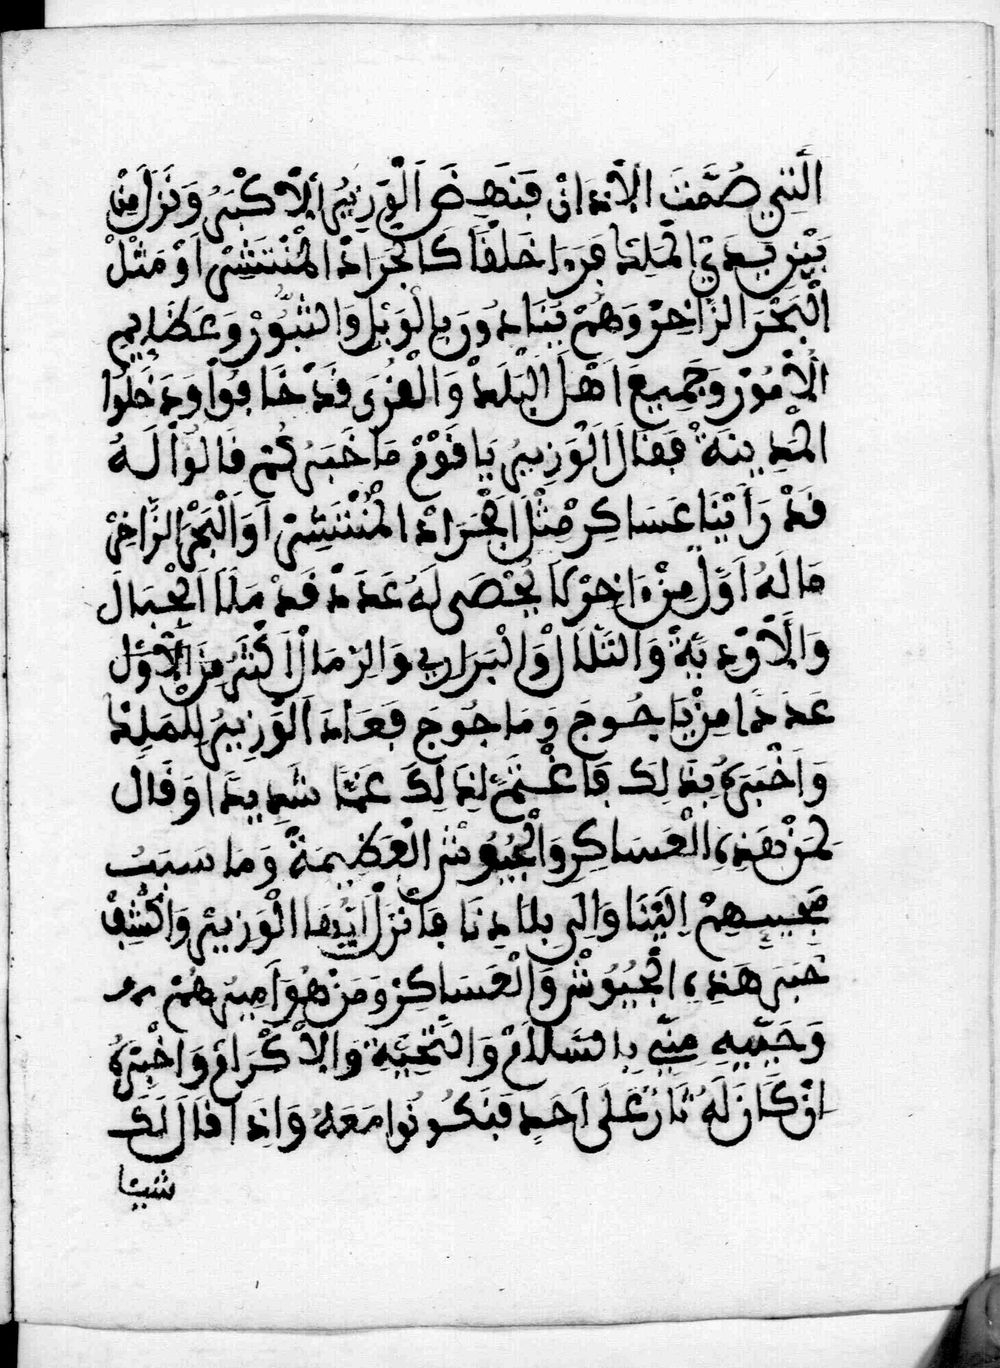 الَّتِي صُمَّتَ الاَذَانْ فَنَهَضَ اَلْوَزِيرُ اَلاَكْبَرُ وَنَزَلَ مِنْ
بَيْنِ يَدَيْ الْمَلِكْ فَرَءَا خَلْقًا كَالْجَرَادْ الْمُنْتَشِرْ اَوْ مَثْلْ
الْبَحْرَ الزَّاخِرْ وَهُمْ يَنَادُورَ بِالْوَيْلْ وَالثُّبُورْ وَعَظَايِمِ
الْأُمُورْ وَجَمِيعَ اَهْلَ الْبَلَدْ وَالْقُرَى قَدْ خَافُوا وَدَخَلُوا
الْمَدِينَةْ فَقَالَ اَلْوَزِيرُ يَا قَوْمْ مَا خَبَرُكُمْ قَالُوا لَهُ
قَدْ رَأَيْنَا عَسَاكِرْ مِثْلَ الْجَرَادْ الْمُنْتَشِرْ اَوِ الْبَحْرْ الزَّاخِرْ
مَا لَهُ اَوَّلْ مِنْ ءَاخِرْ لَا يُحْصَى لَهُ عَدَدْ قَدْ مَلَأَ اَلْجِبَالَ
وَالْأَوْدِيَةْ وَالتَّلَالْ وَالْبَرَارِي وَالرِّمَالْ اَكْثَرْ مِنَ الْأَوَّلْ
عَدَدًا مِنْ يَاجُوجَ وَمَاجُوجَ فَعَادَ اَلْوَزِيرُ لِلْمَلِكْ
وَاَخْبَرَهُ بِذَلِكَ فَاغْتَمَّ لِذَلِكَ غَمًّا شَدِيدًا وَقَالَ
لِمَنْ هَذِهِ الْعَسَاكِرْ وَالْجُيُوشْ الْعَظِيمَةْ وَمَا سَبَبُ
مَجِيـهِمْ اِلَيْنَا وَاِلَى بِلَادِنَا فَاَنْزَلْ اَيُّهَا الْوَزِيرْ وَاكْشِفْ
خَبَرَ هَذِهِ الْجُيُوشْ وَالْعَسَاكِرْ وَمَنْ هُوَ اَمِيرُهُمْ
وَحَيِّيهِ مِنِّي بِالسَّلَامْ وَالتَّحِيَّةْ وَالْاَكْرَامْ وَاخْبِرْهُ
اِنْ كَانَ لَهُ ثَارْ عَلَى اَحَدٍ فَنَكُونُوا مَعَهُ وَاِذَا قَالَ لَكَ
شيئا